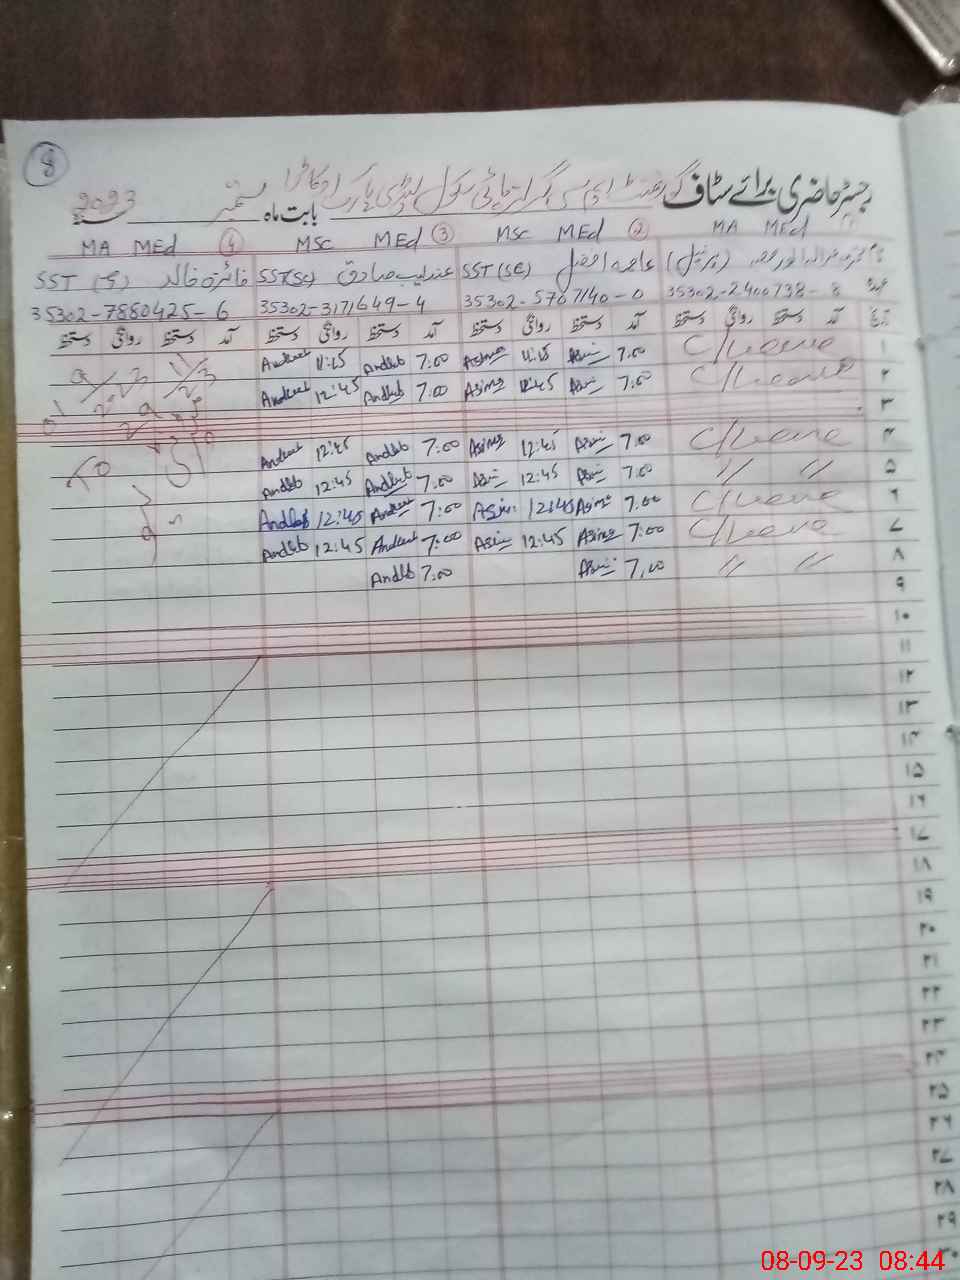 8
رجسٹر حاضری برائے سٹاف گورنمنٹ ایم سی گرلز ہائی سکول لیڈی پارک اوکاڑا
بابت ماہ ستمبر 2023
MA MEd
MSc MEd ②
MSc MEd ③
MA MEd ④
(پرنسپل)
عاصمہ افضل SST (SC)
عندلیب صادق SST (SC)
فائزہ خالد SST
35302-2400738-8
35302-5707140-0
35302-3171649-4
35302-7880425-6
تاریخ آمد دستخط روانگی دستخط آمد دستخط روانگی دستخط آمد دستخط روانگی دستخط آمد دستخط روانگی دستخط
۱ C/Leave 7.00 Asim 11:15 Asima 7.00 Andleeb 11:15 Andleeb
۲ C/Leave 7.00 Asim 12:45 Asima 7.00 Andleeb 12:45 Andleeb
۳
۴ C/Leave 7.00 Asim 12:45 Asima 7.00 Andleeb 12:45 Andleeb
۵ // // 7.00 Asim 12:45 Asim 7.00 Andleeb 12:45 Andleb
۶ C/Leave 7.00 Asima 12:45 Asim 7:00 Andleeb 12:45 Andleb
۷ C/Leave 7:00 Asima 12:45 Asim 7:00 Andleeb 12:45 Andleb
۸ // // 7,00 Asim 7.00 Andleb
۹
۱۰
۱۱
۱۲
۱۳
۱۴
۱۵
۱۶
۱۷
۱۸
۱۹
۲۰
۲۱
۲۲
۲۳
۲۴
۲۵
۲۶
۲۷
۲۸
۲۹
۳۰
08-09-23 08:44